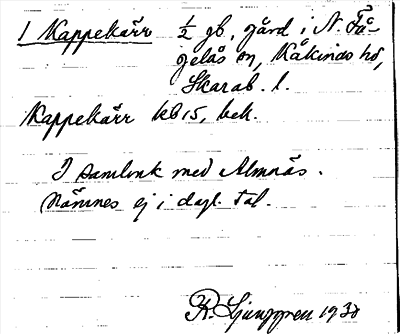 1 Kappekärr ½ gb, gård i N. Få-
gelås sn, Kåkinds hd,
Skarab. l.
Kappekärr kb 15, bek.
I sambruk med Almnäs.
Nämnes ej i dagl. tal.
R. Ljunggren 1930